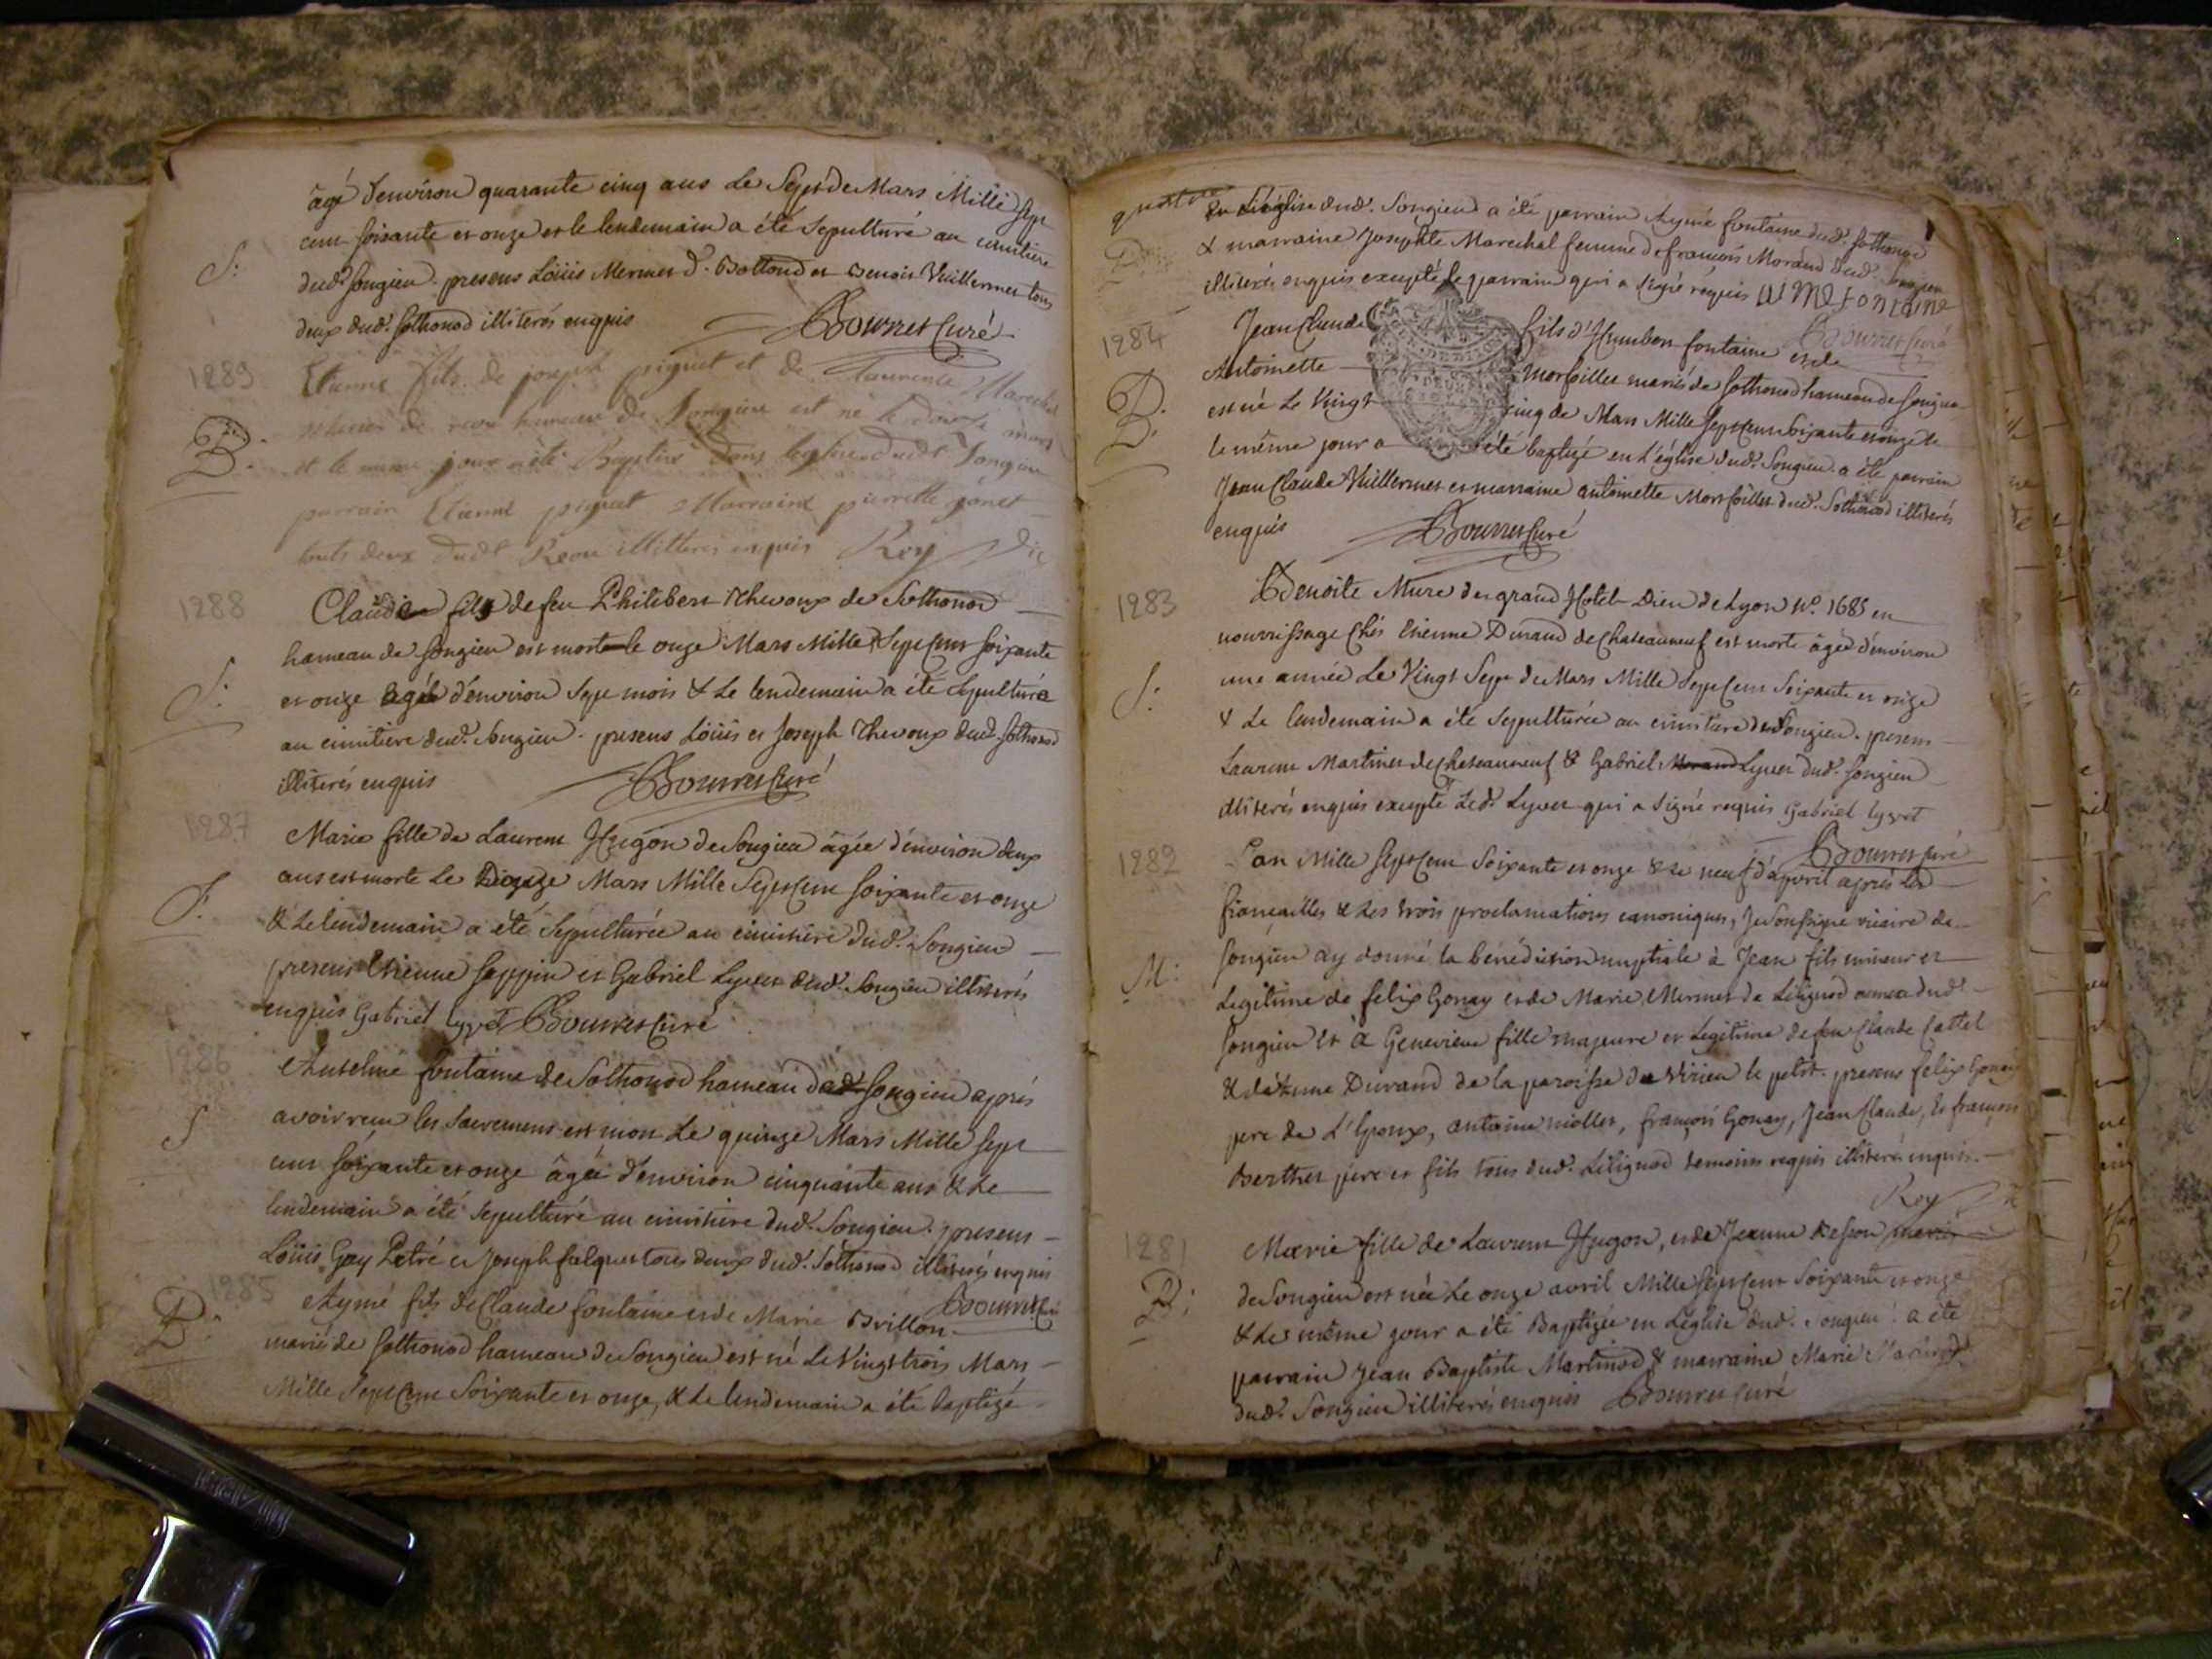 âgé d'environ quarante cinq ans le Sept de Mars Mille Sept
cent soixante et onze et le lendemain a été Sepulturé au cimitiere
S: dud. Songieu. presens Loüis Mermet d. Bottond et Benoit Vuillermet tous
deux dud. Sothonod illiterés enquis Bouvret Curé
1289 Etienne fils de joseph piquet et de Laurence Marechal
mariés de hameau de Songieu est né le douze mars
B. et le meme jour a été Baptisé dans leglise dudt Songieu
parrain Etienne piquat Marraine pierrette gonet
touts deux dudt illitteres enquis Roy vic
1288 Claudi fils de feu Philibert Thevoux de Sothonod
hameau de Songieu est morte le onze Mars Mille Sept Cent soixante
S: et onze agée d'environ Sept mois & Le lendemain a été Sepulturé
au cimitiere dud. Songieu. presens Loüis et Joseph Thevoux dud. Sothonod
illiterés enquis Bouvret Curé
1287 Marie fille de Laurent Hugon de Songieu âgée d'environ deux
ans est morte Le Mars Mille Sept Cent soixante et onze
S. & Le lendemain a été Sepulturée au cimitiere dud. Songieu
presens Etienne Seppin et Gabriel Lyvet dud. Songieu illiterés
enquis Gabriel lyvet Bouvret Curé
1286 Anselme fontaine de Sothonod hameau dud Songieu après
S avoir recu les Sacremens est mort Le quinze Mars Mille Sept
cent soixante et onze âgée d'environ cinquante ans & Le
lendemain a été Sepulturé au cimitiere dud. Songieu. presens
Loüis Gay Petré et Joseph falquet tous deux dud. Sothonod illiterés enquis
Bouvret Curé
1285 Aymé fils de Claude fontaine et de Marie Brillon
B: mariés de Sothonod hameau de Songieu est né Le Vingt trois Mars
Mille Sept Cent Soixante et onze, & Le lendemain a été baptizé
en L'église dud. Songieu a été parrain Aymé fontaine dud. Sothonod
& marraine Josephte Marechal femme de françois Morand dud.
illiterés enquis excepté le parrain qui a signé requis AYME FONTAINE
Bouvret Curé
1284 Jean Claude fils d'Humbert fontaine et de
Antoinette Morfoillet mariés de Sothonod hameau de Songieu
B. est né Le Vingt cinq de Mars Mille Sept Cent Soixante et onze &
le même jour a été baptizé en L'église dud. Songieu a été parrain
Jean Claude Vuillermet et marraine antoinette Morfoillet dud. Sothonod illiterés
enquis Bouvret Curé
1283 Benoite Mure du grand Hotel Dieu de Lyon N°. 1685 en
nourrissage Chés Etienne Durand de Chateauneuf est morte âgée d'environ
S: une année Le Vingt Sept de Mars Mille Sept Cent Soixante et onze
& Le lendemain a été Sepulturée au cimitiere de Songieu. presens
Laurent Martinet de Chateauneuf & Gabriel Morand Lyvet dud. Songieu
illiterés enquis excepté Led. Lyvet qui a Signé requis Gabriel lyvet
Bouvret Curé
1282 L'an Mille Sept Cent Soixante et onze & Le neuf d'apvril après Les
fiançailles & Les trois proclamations canoniques, Je Soussigné vicaire de
M: Songieu ay donné la bénédiction nuptiale à Jean fils mineur et
Legitime de felix Gonay et de Marie Mermet de Lilignod dud.
Songieu et a Genevieve fille majeure et Legitime de feu Claude Cattel
& d'Etienne Durand de la paroisse de Virieu le petit. presens felix Gonay
pere de L'Epoux, antoine mollet, françois Gonay, Jean Claude, & françois
Berthet pere et fils tous dud. Lilignod temoins requis illiterés enquis.
Roy
1281 Marie fille de Laurent Hugon, et de Jeanne mariés
B: de Songieu est née Le onze avril Mille Sept Cent Soixante et onze
& Le même jour a été Baptizée en L'église dud. Songieu: a été
parrain Jean Baptiste Martinod & marraine Marie
dud. Songieu illiterés enquis Bouvret Curé